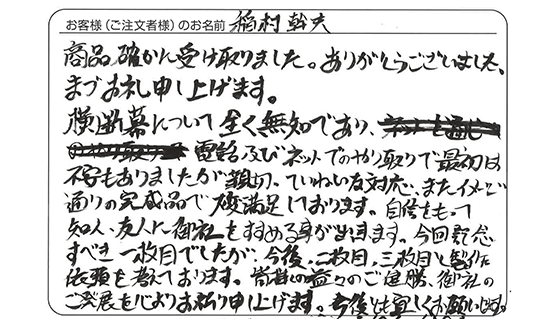 お客様(ご注文者様)のお名前 稲村幹夫
商品確かに受け取りました。ありがとうございました、
まづお礼申し上げます。
横断幕について全く無知であり、
電話及びネットでのやり取りで最初は
不安もありましたが親切、ていねいな対応、またイメージ
通りの完成品で大変満足しております。自信をもって
知人、友人に御社をすすめる事が出来ます。今回記念
すべき一枚目でしたが、今後、二枚目、三枚目と製作
依頼を考えております。皆様の益々のご健勝、御社の
ご発展を心よりお祈り申し上げます。今後とも宜しくお願いします。